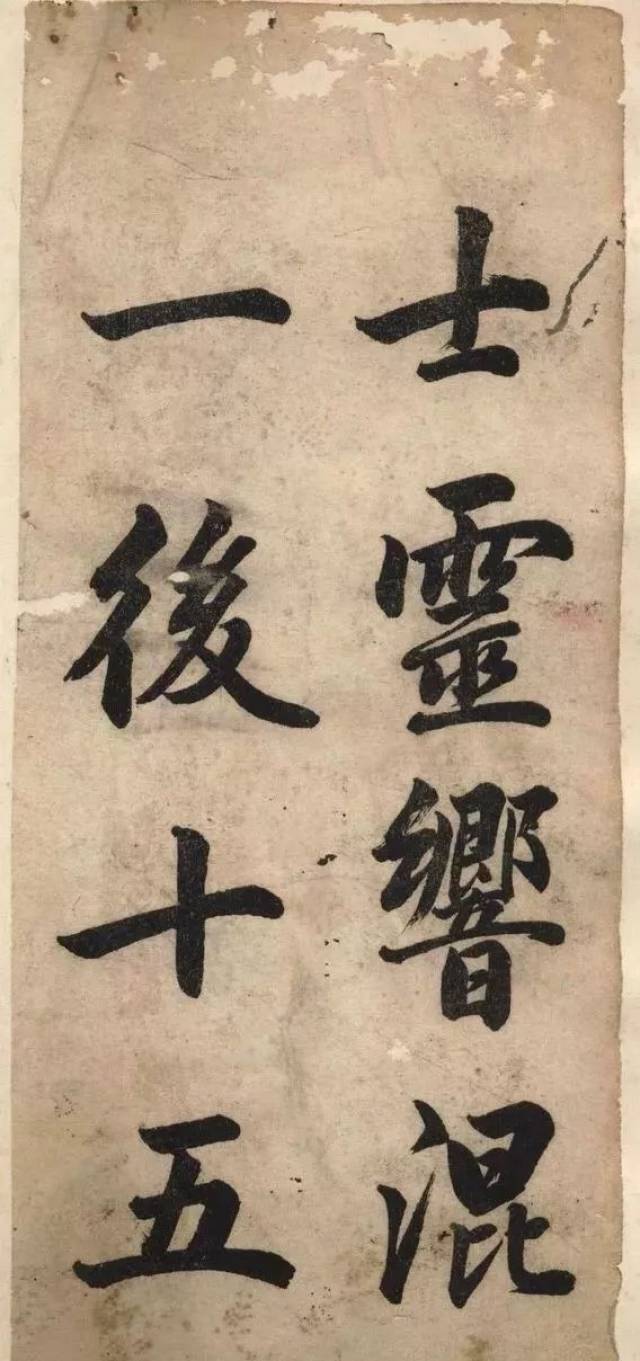 士靈響混
一後十五